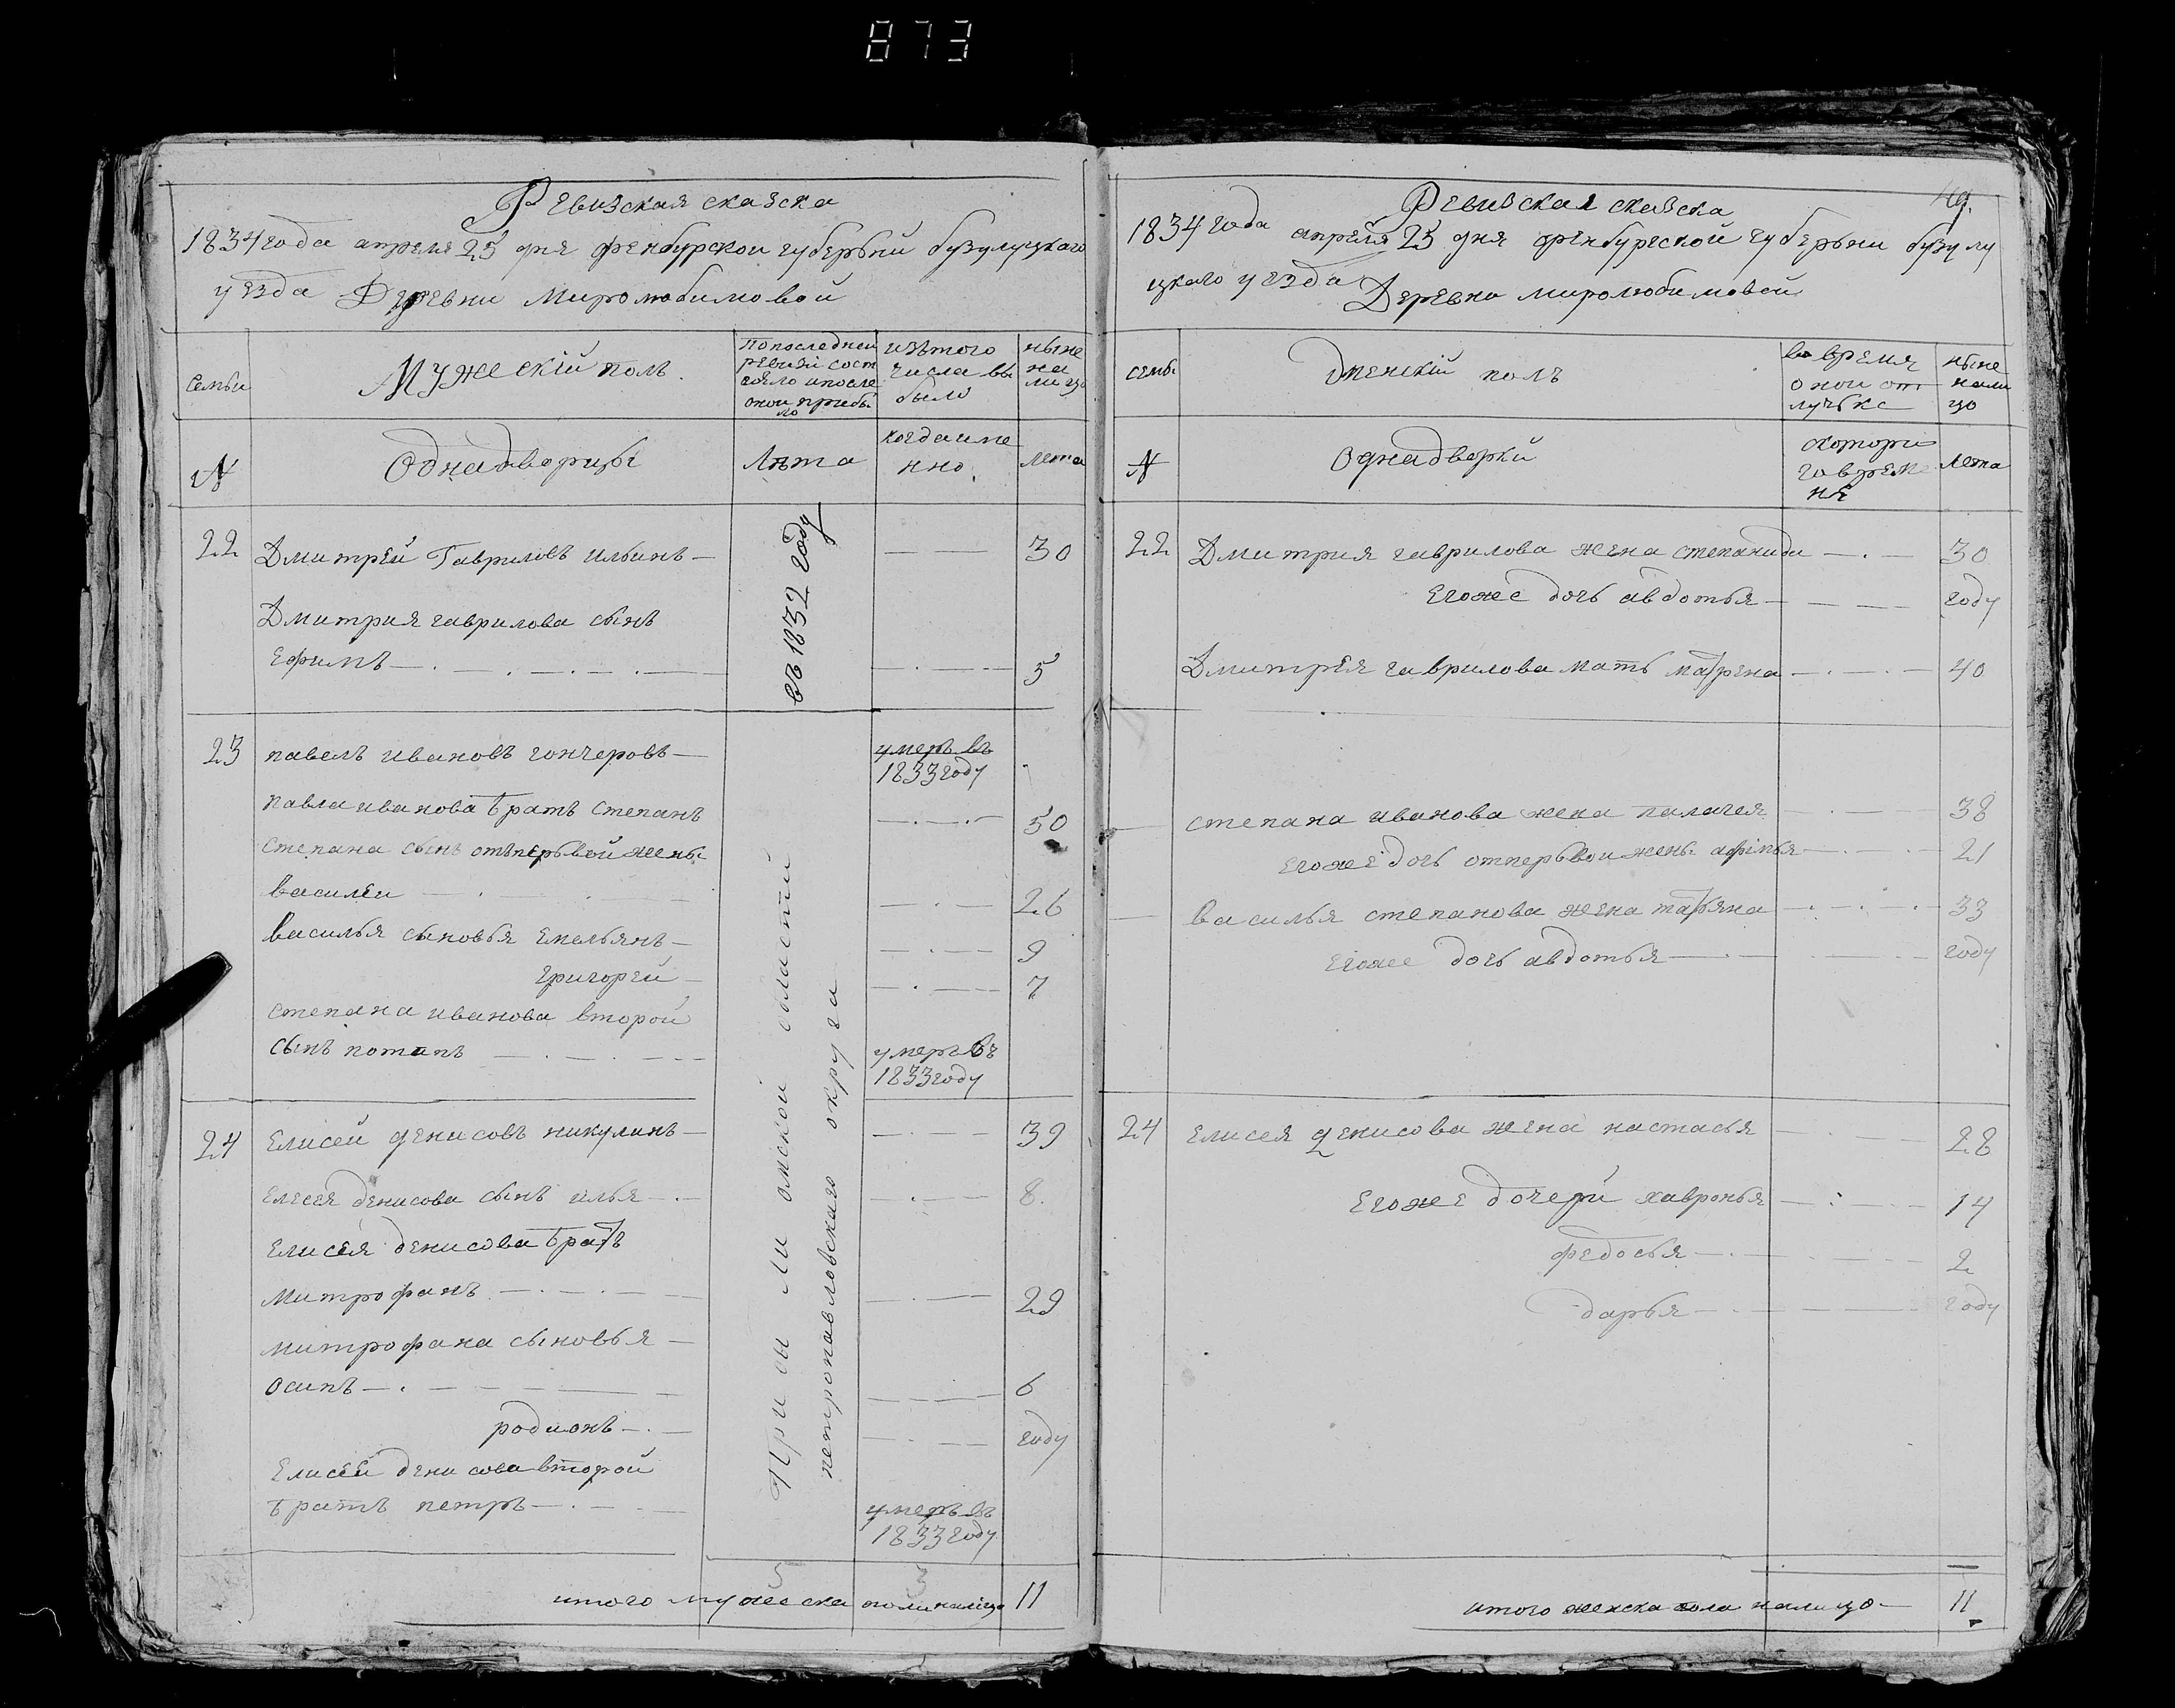 873
Ревизская сказска
1834 года апреля 25 дня оренбурской губерьнй бузулуцкаго
уезда Деревни Миролюбимовой
семьи
Мужескiй полъ
попоследней
ревизiй сост
ояло ипосле
оной прибы
ло
изътого
числа вы
было
ныне
на
лицо
N
Однадворцы
Лѣта
когдаиме
нно
лета
22
Дмитрей Гавриловъ ильинъ —
30
Дмитрия гаврилова сынъ
Ефимъ —
5
въ 1832 году
23
павелъ ивановъ гончеровъ —
умеръ въ
1833 году
павла иванова братъ степанъ
50
степана сынъ отъперьвой жены
василей
26
василья сыновья Емельянъ —
9
григорей —
7
степана иванова второй
сынъ потапъ
умеръ въ
1833 году
24
Елисей денисовъ никулинъ —
39
Елесея денисова сынъ илья
8.
Елисея денисова братъ
митрофанъ
29
митрофана сыновья —
осипъ —
6
родионъ —
году
Елисея денисова второй
братъ петръ —
умеръ въ
1833 году
омской области
петропавловскаго округа
5
3
итого мужеска пола налицо 11
49.
Ревизская сказска
1834 года апреля 25 дня оренбуреской губерьни бузулу
цкаго уезда Деревни миролюбимовой
семьи
женскiй полъ
во время
оной от
лучьке
ныне
нали
цо
N
Однадверки
скотори
говреме
ня
лета
22
Дмитрия гаврилова жена степанида
30
Егоже дочь авдотья —
году
Дмитрея гаврилова мать матрена
40
степана иванова жена палагея
38
Егоже дочь отперьвои жены афимья
21
василья степанова жена татьяна
33
Егоже дочь авдотья —
году
24
Елисея денисова жена настасья
28
Егоже дочери хавронья
14
федосья —
2
дарья —
году
итого женска пола налицо — 11